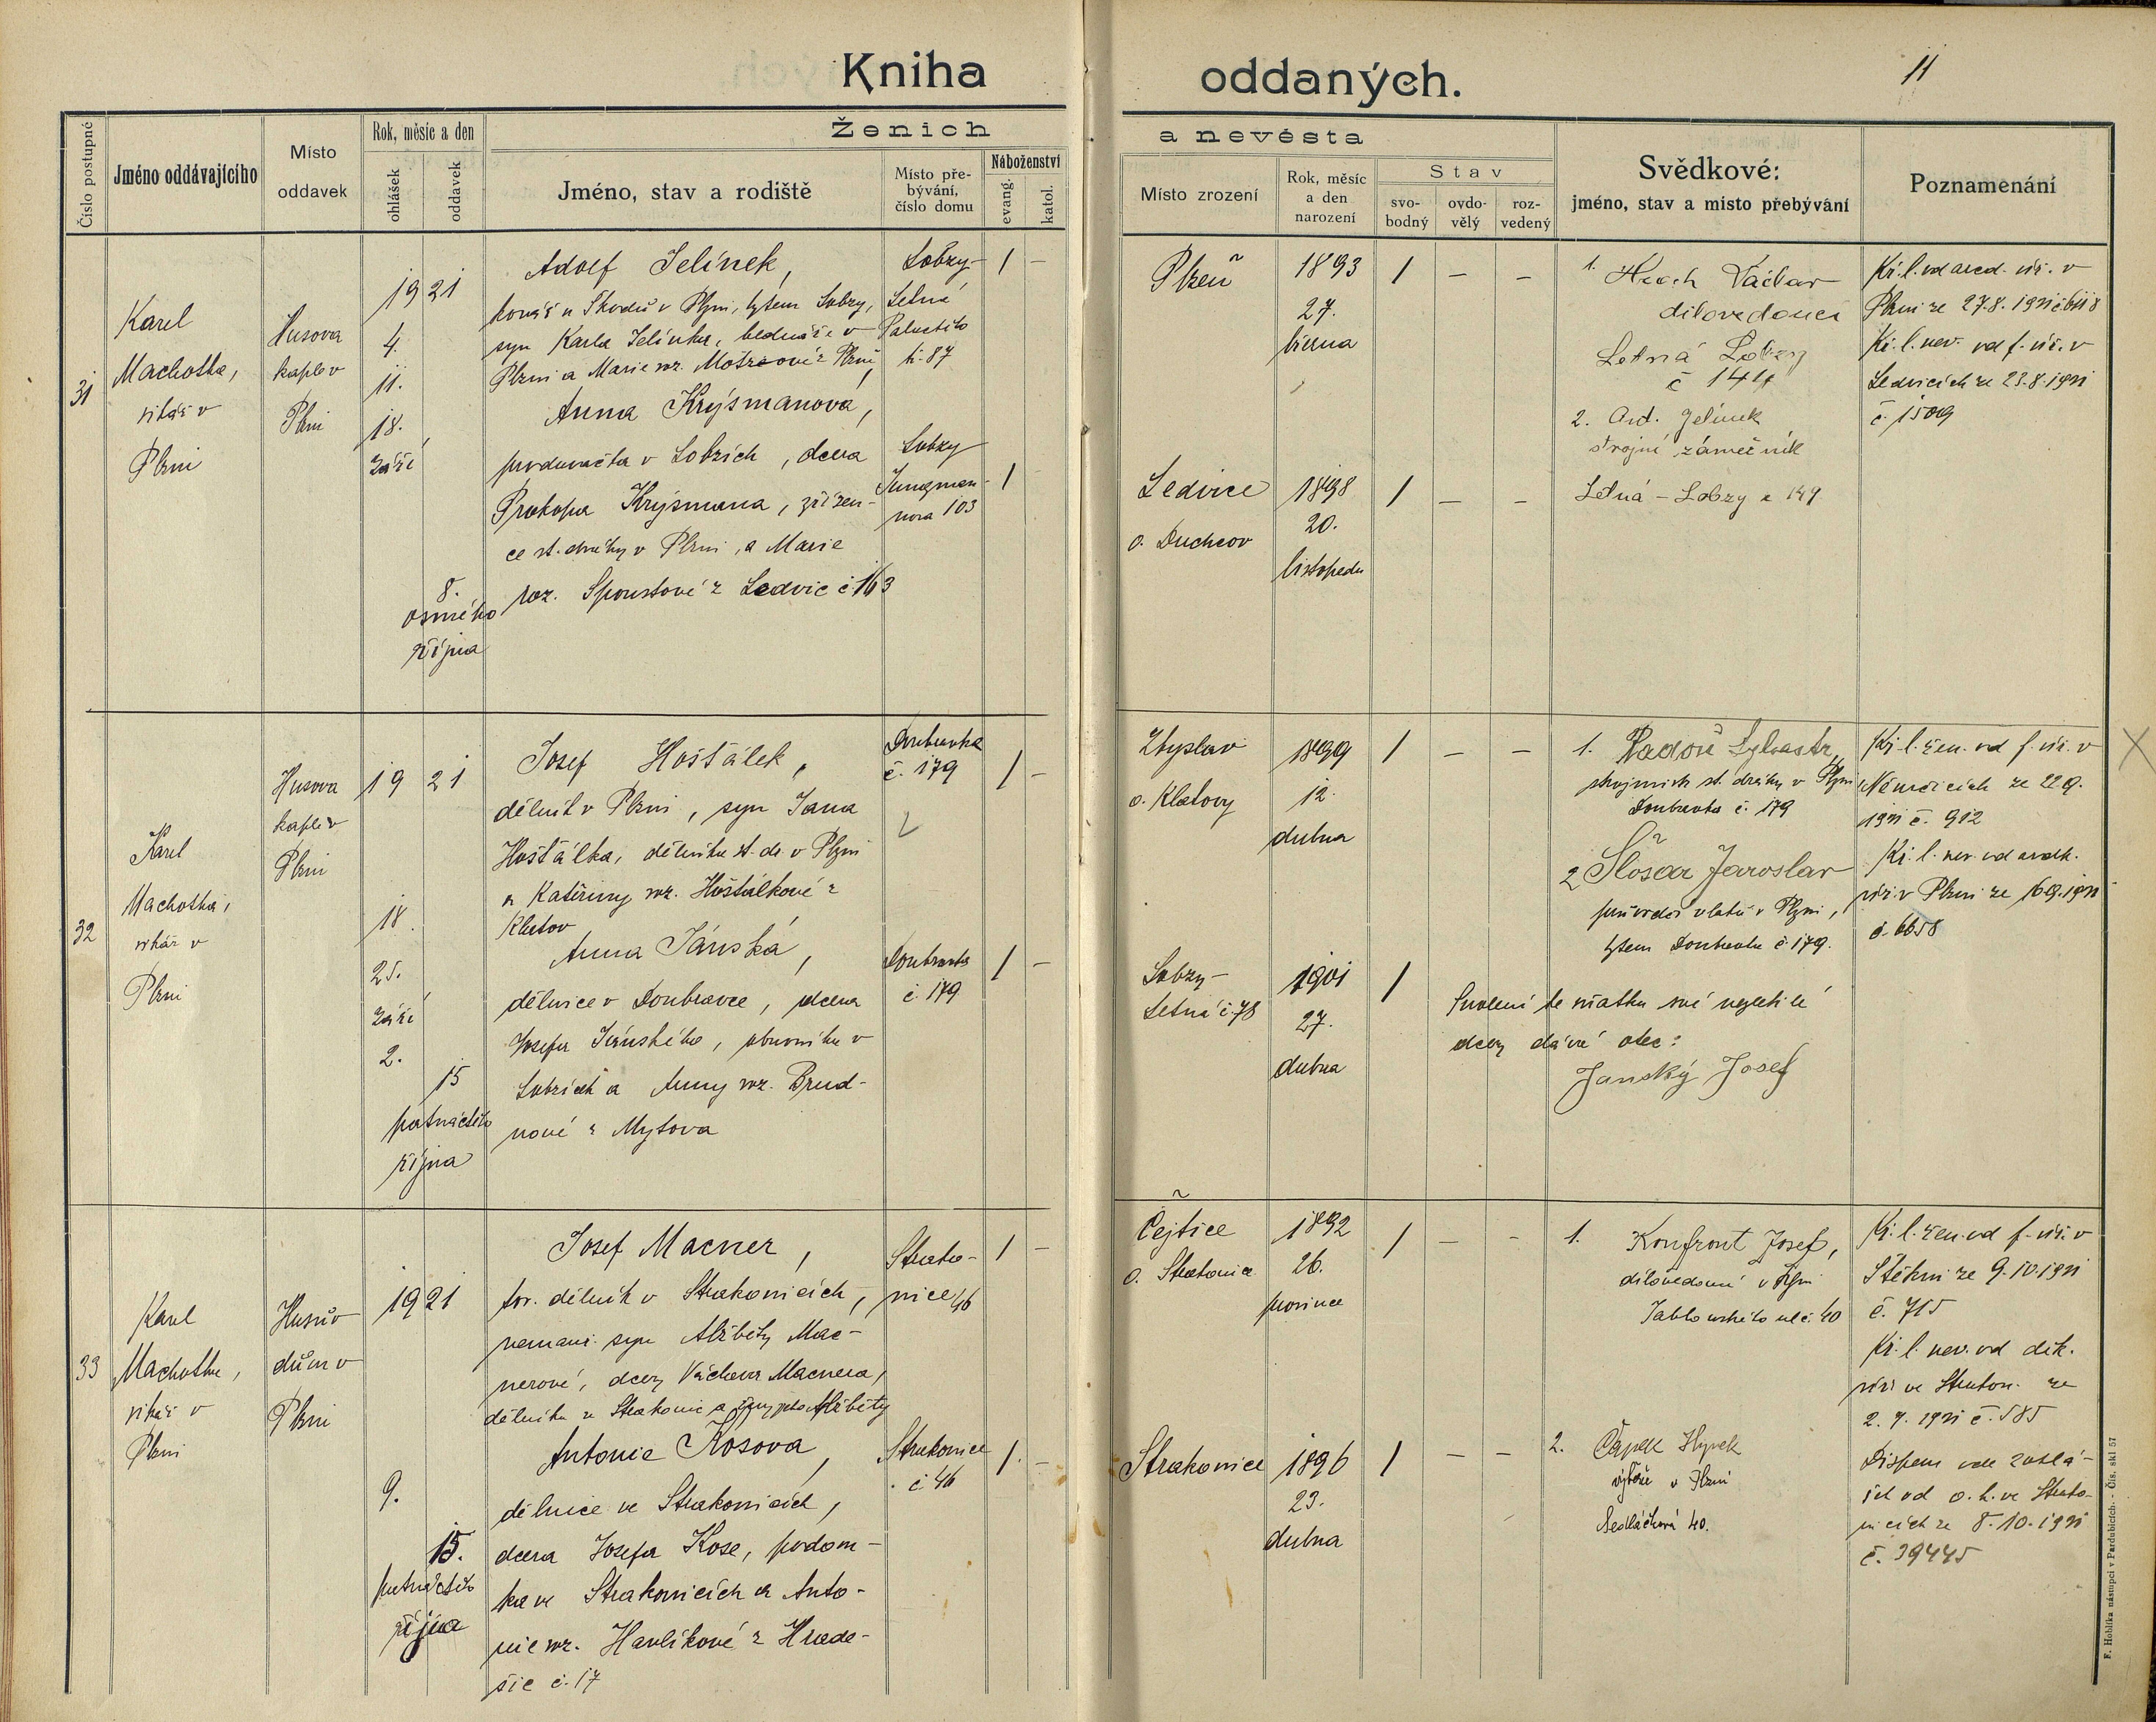 Kniha oddaných.
11
Číslo postupné
Jméno oddávajícího
Místo
oddavek
Rok, měsíc a den
ohlášek
oddavek
Ženich
a nevěsta
Jméno, stav a rodiště
Místo pře-
bývání,
číslo domu
Náboženství
evang.
katol.
Místo zrození
Rok, měsíc
a den
narození
Stav
svo-
bodný
ovdo-
vělý
roz-
vedený
Svědkové:
jméno, stav a misto přebývání
Poznamenání
31
Karel
Machotka,
vikář v
Plzni
Husova
kaple v
Plzni
1921
4.
11.
18.
září
8.
osmého
října
Adolf Jelínek,
kovář u Škodů v Plzni, bytem Lobzy,
syn Karla Jelínka, bednáře v
Plzni a Marie roz. z Plzně
Anna Krýsmanova,
prodavačka v Lobzích, dcera
Prokopa Krýsmana, zřízen-
ce st. dráhy v Plzni, a Marie
roz. Spoustové z Ledvic č 163
Lobzy-
Letná
Palackého
č. 87
Lobzy
Jungman-
nova 103
1 -
1
Plzeň
1893
27.
března
1 - -
Ledvice
o. Duchcov
1898
20.
listopadu
1 - -
1. Václav
dílovedoucí
Letná Lobzy
č 144
2. Ant. Jelínek
strojní zámečník
Letná - Lobzy č 144
Kř. l. od arcid. úř. v
Plzni ze 27.8. 1921
Kř. l. nev. od f. úř. v
Ledvicích ze 23.8.1921
č. 1509
32
Karel
Machotka,
vikář v
Plzni
Husova
kaple v
Plzni
1921
18.
25.
září
2.
15
patnáctého
října
Josef Hošťálek,
dělník v Plzni, syn Jana
Hošťálka, dělníka st. dr. v Plzni
a Kateřiny roz. Hošťálkové z
Klatov
Anna Jánská,
dělnice v Doubravce, dcera
Josefa Jánského, obuvníka v
Lobzích a Anny roz. Brud-
nové z Mytova
Doubravka
č. 179
Doubravka
č 179
1 -
1 -
o. Klatovy
1899
12.
dubna
1 - -
Lobzy-
Letná č. 78
1901
27.
dubna
1
Svolení ke sňatku své nezletilé
dcery dává otec:
Janský Josef
1. Sylvestr,
st. dráhy v Plzni
Doubravka č. 179
2 Šlosar Jaroslav
průvodčí vlaků v Plzni,
bytem Doubravka č. 179.
Kř. l. žen. od f. úř. v
Němčicích ze 22.9.
1921 č. 912
Kř. l. nev. od arcidk.
úř. v Plzni ze 16.9.1921
č. 6658
X
33
Karel
Machotka,
vikář v
Plzni
Husův
dům v
Plzni
1921
9.
15.
patnáctého
října
Josef Macner,
tov. dělník v Strakonicích,
nemanž. syn Alžběty Mac-
nerové, dcery Václava Macnera,
dělníka ze Strakonic a Alžběty
Antonie Kosova,
dělnice ve Strakonicích,
dcera Josefa Kose, podom-
ka ve Strakonicích a Anto-
nie roz. Havlíkové z Hrade-
šic č. 17
Strako-
nice 46
Strakonice
č. 46
1 -
1. -
Čejtice
o. Strakonice
1892
26.
prosince
1 - -
Strakonice
1896
23.
dubna
1 - -
1. Konfront Josef,
dílovedoucí v Plzni
Jablonského ul č. 40
2. Čapek Hynek
v Plzni
Sedláčková 40.
Kř. l. žen. od f. úř. v
Štěkni ze 9.10.1921
č. 715
Kř. l. nev. od děk.
úř. ve Strakon. ze
2. 9. 1921 č. 585
Dispens ode 2 ohlá-
šek od o. h. ve Strako-
nicích ze 8.10.1921
č. 39445
F. Hoblíka nástupci v Pardubicích. - Čís. skl 57